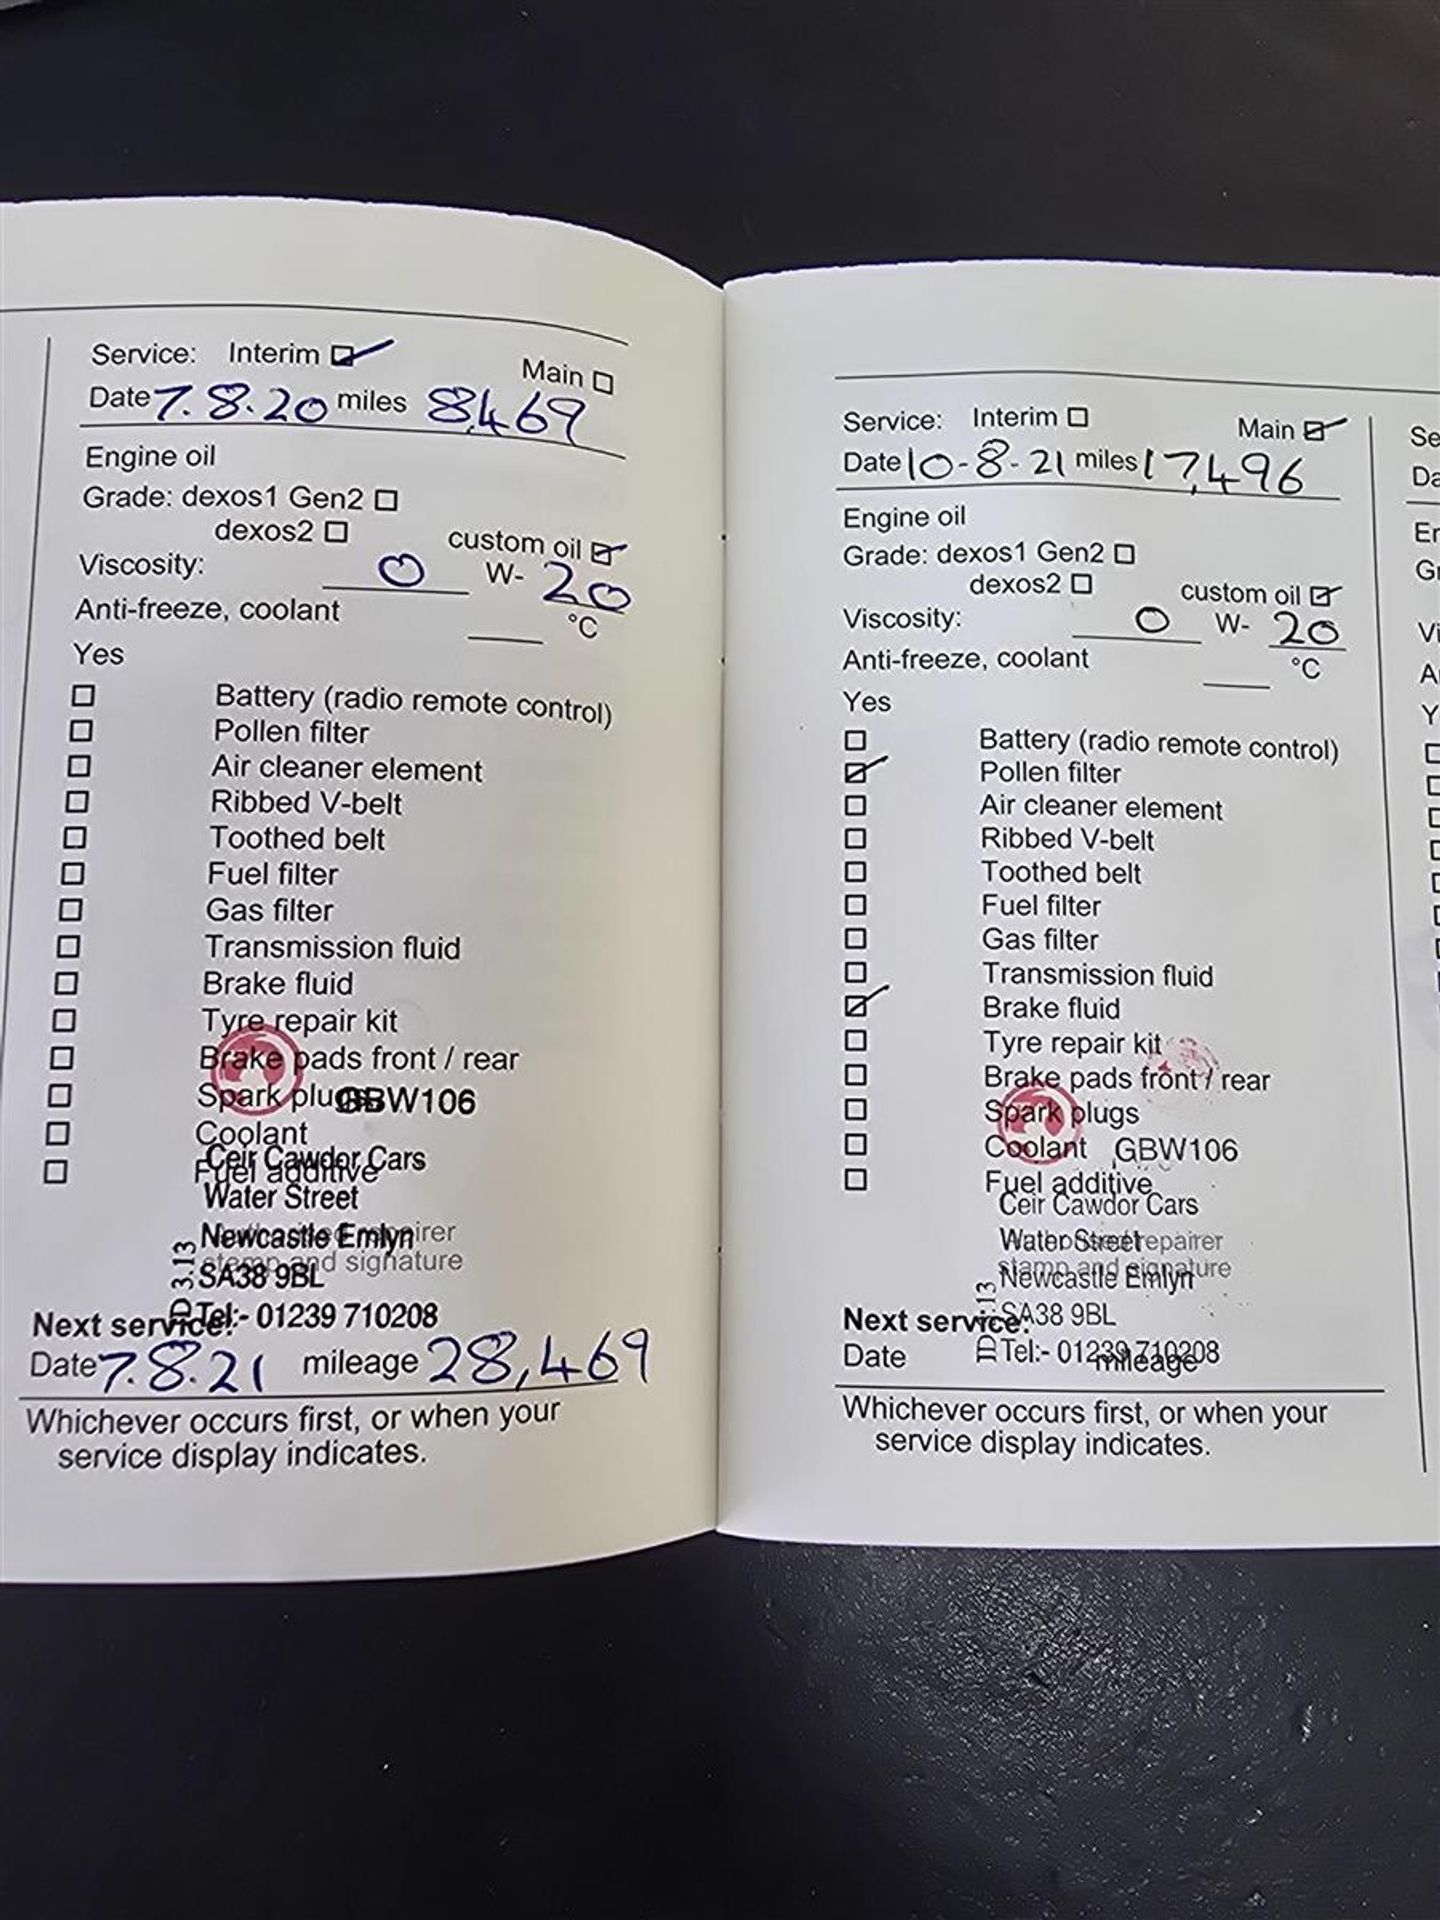 Service: Interim Main
Date 7.8.20 miles 8,469
Engine oil
Grade: dexos1 Gen2
dexos2 custom oil
Viscosity: 0 W- 20
Anti-freeze, coolant °C
Yes
Battery (radio remote control)
Pollen filter
Air cleaner element
Ribbed V-belt
Toothed belt
Fuel filter
Gas filter
Transmission fluid
Brake fluid
Tyre repair kit
Brake pads front / rear
Spark plugs GBW106
Coolant
Ceir Cawdor Cars
Fuel additive
Water Street
Newcastle Emlyn repairer
stamp and signature
SA38 9BL
ID 3.13
Tel:- 01239 710208
Next service:
Date 7.8.21 mileage 28,469
Whichever occurs first, or when your
service display indicates.
Service: Interim Main
Date 10-8-21 miles 17,496
Engine oil
Grade: dexos1 Gen2
dexos2 custom oil
Viscosity: 0 W- 20
Anti-freeze, coolant °C
Yes
Battery (radio remote control)
Pollen filter
Air cleaner element
Ribbed V-belt
Toothed belt
Fuel filter
Gas filter
Transmission fluid
Brake fluid
Tyre repair kit
Brake pads front / rear
Spark plugs
Coolant GBW106
Fuel additive
Ceir Cawdor Cars
Water Street repairer
stamp and signature
Newcastle Emlyn
SA38 9BL
Next service:
Tel:- 01239 710208
Date mileage
Whichever occurs first, or when your
service display indicates.
Se
Da
Er
Gr
Vi
A
Y